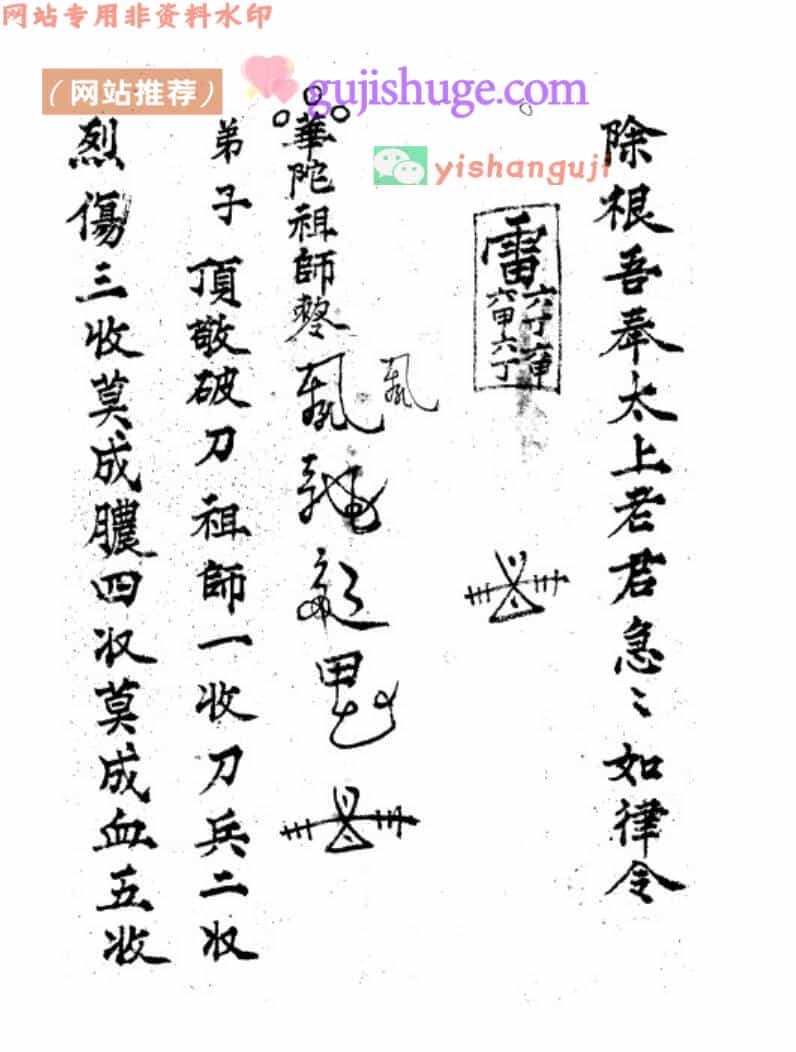 网站专用非资料水印
（网站推荐）
gujishuge.com
yishanguji
除根吾奉太上老君急〻如律令
雷
六丁六甲
六甲六丁
華陀祖師
弟子頂敬破刀祖師一收刀兵二收
烈傷三收莫成膿四收莫成血五收